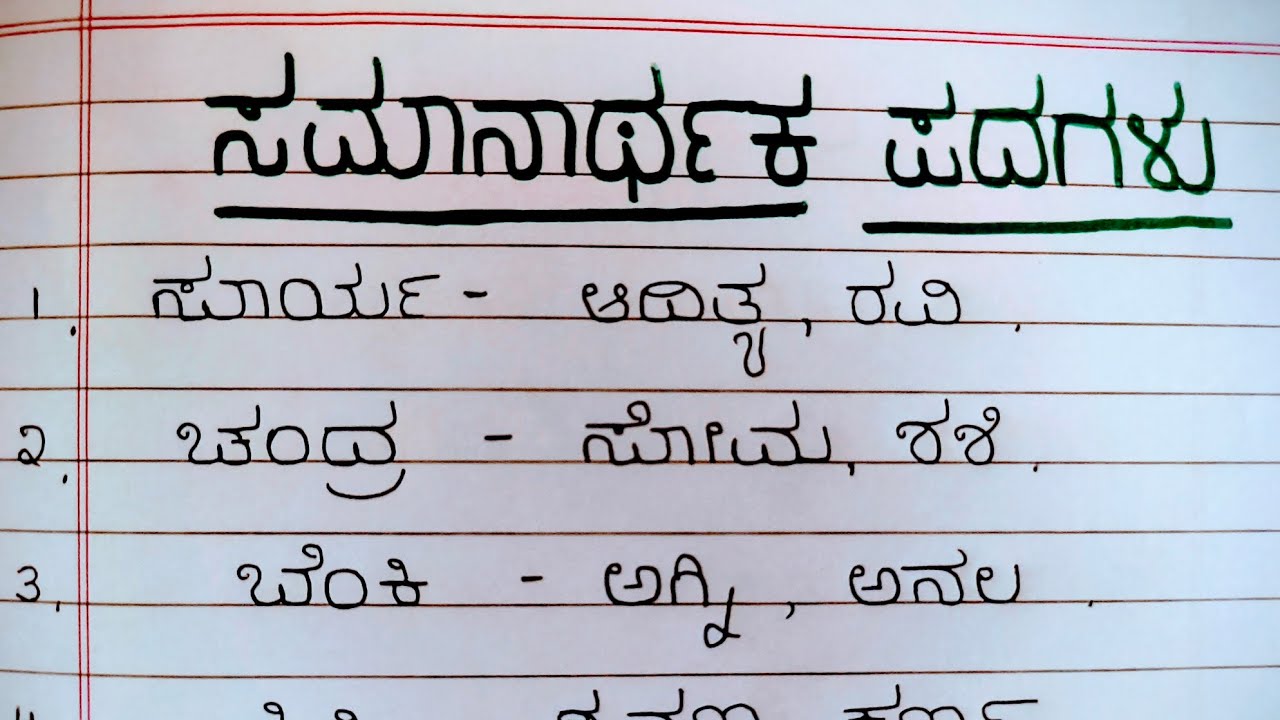 ಸಮಾನಾರ್ಥಕ ಪದಗಳು
1. ಸೂರ್ಯ - ಆದಿತ್ಯ, ರವಿ.
೨. ಚಂದ್ರ - ಸೋಮ, ಶಶಿ.
3. ಬೆಂಕಿ - ಅಗ್ನಿ, ಅನಲ.